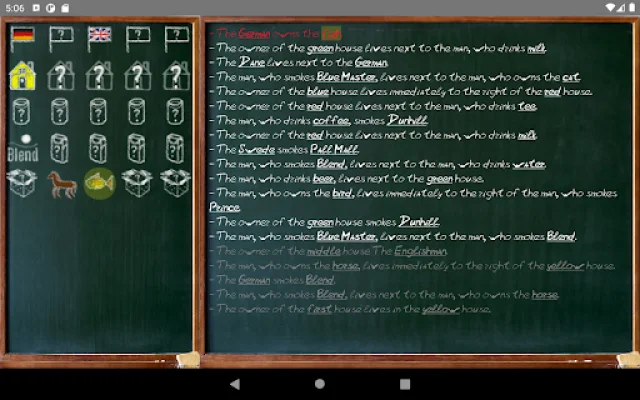 5:06
- The German owns the
- The owner of the green house lives next to the man, who drinks milk.
- The Dane lives next to the German.
- The man, who smokes Blue Master, lives next to the man, who owns the cat.
- The owner of the blue house lives immediately to the right of the red house.
- The owner of the red house lives next to the man, who drinks tee.
- The man, who drinks coffee, smokes Dunhill.
- The owner of the red house lives next to the man, who drinks milk.
- The Swede smokes Pall Mall.
- The man, who smokes Blend, lives next to the man, who drinks water.
- The man, who drinks beer, lives next to the green house.
- The man, who owns the bird, lives immediately to the right of the man, who smokes
Prince.
- The owner of the green house smokes Dunhill.
- The man, who smokes Blue Master, lives next to the man, who smokes Blend.
- The owner of the middle house The Englishman.
- The man, who owns the horse, lives immediately to the right of the yellow house.
- The German smokes Blend.
- The man, who smokes Blend, lives next to the man, who owns the horse.
- The owner of the first house lives in the yellow house.
? ? ?
? ? ? ?
? ? ? ? ?
Blend ? ? ? ?
? ? ?